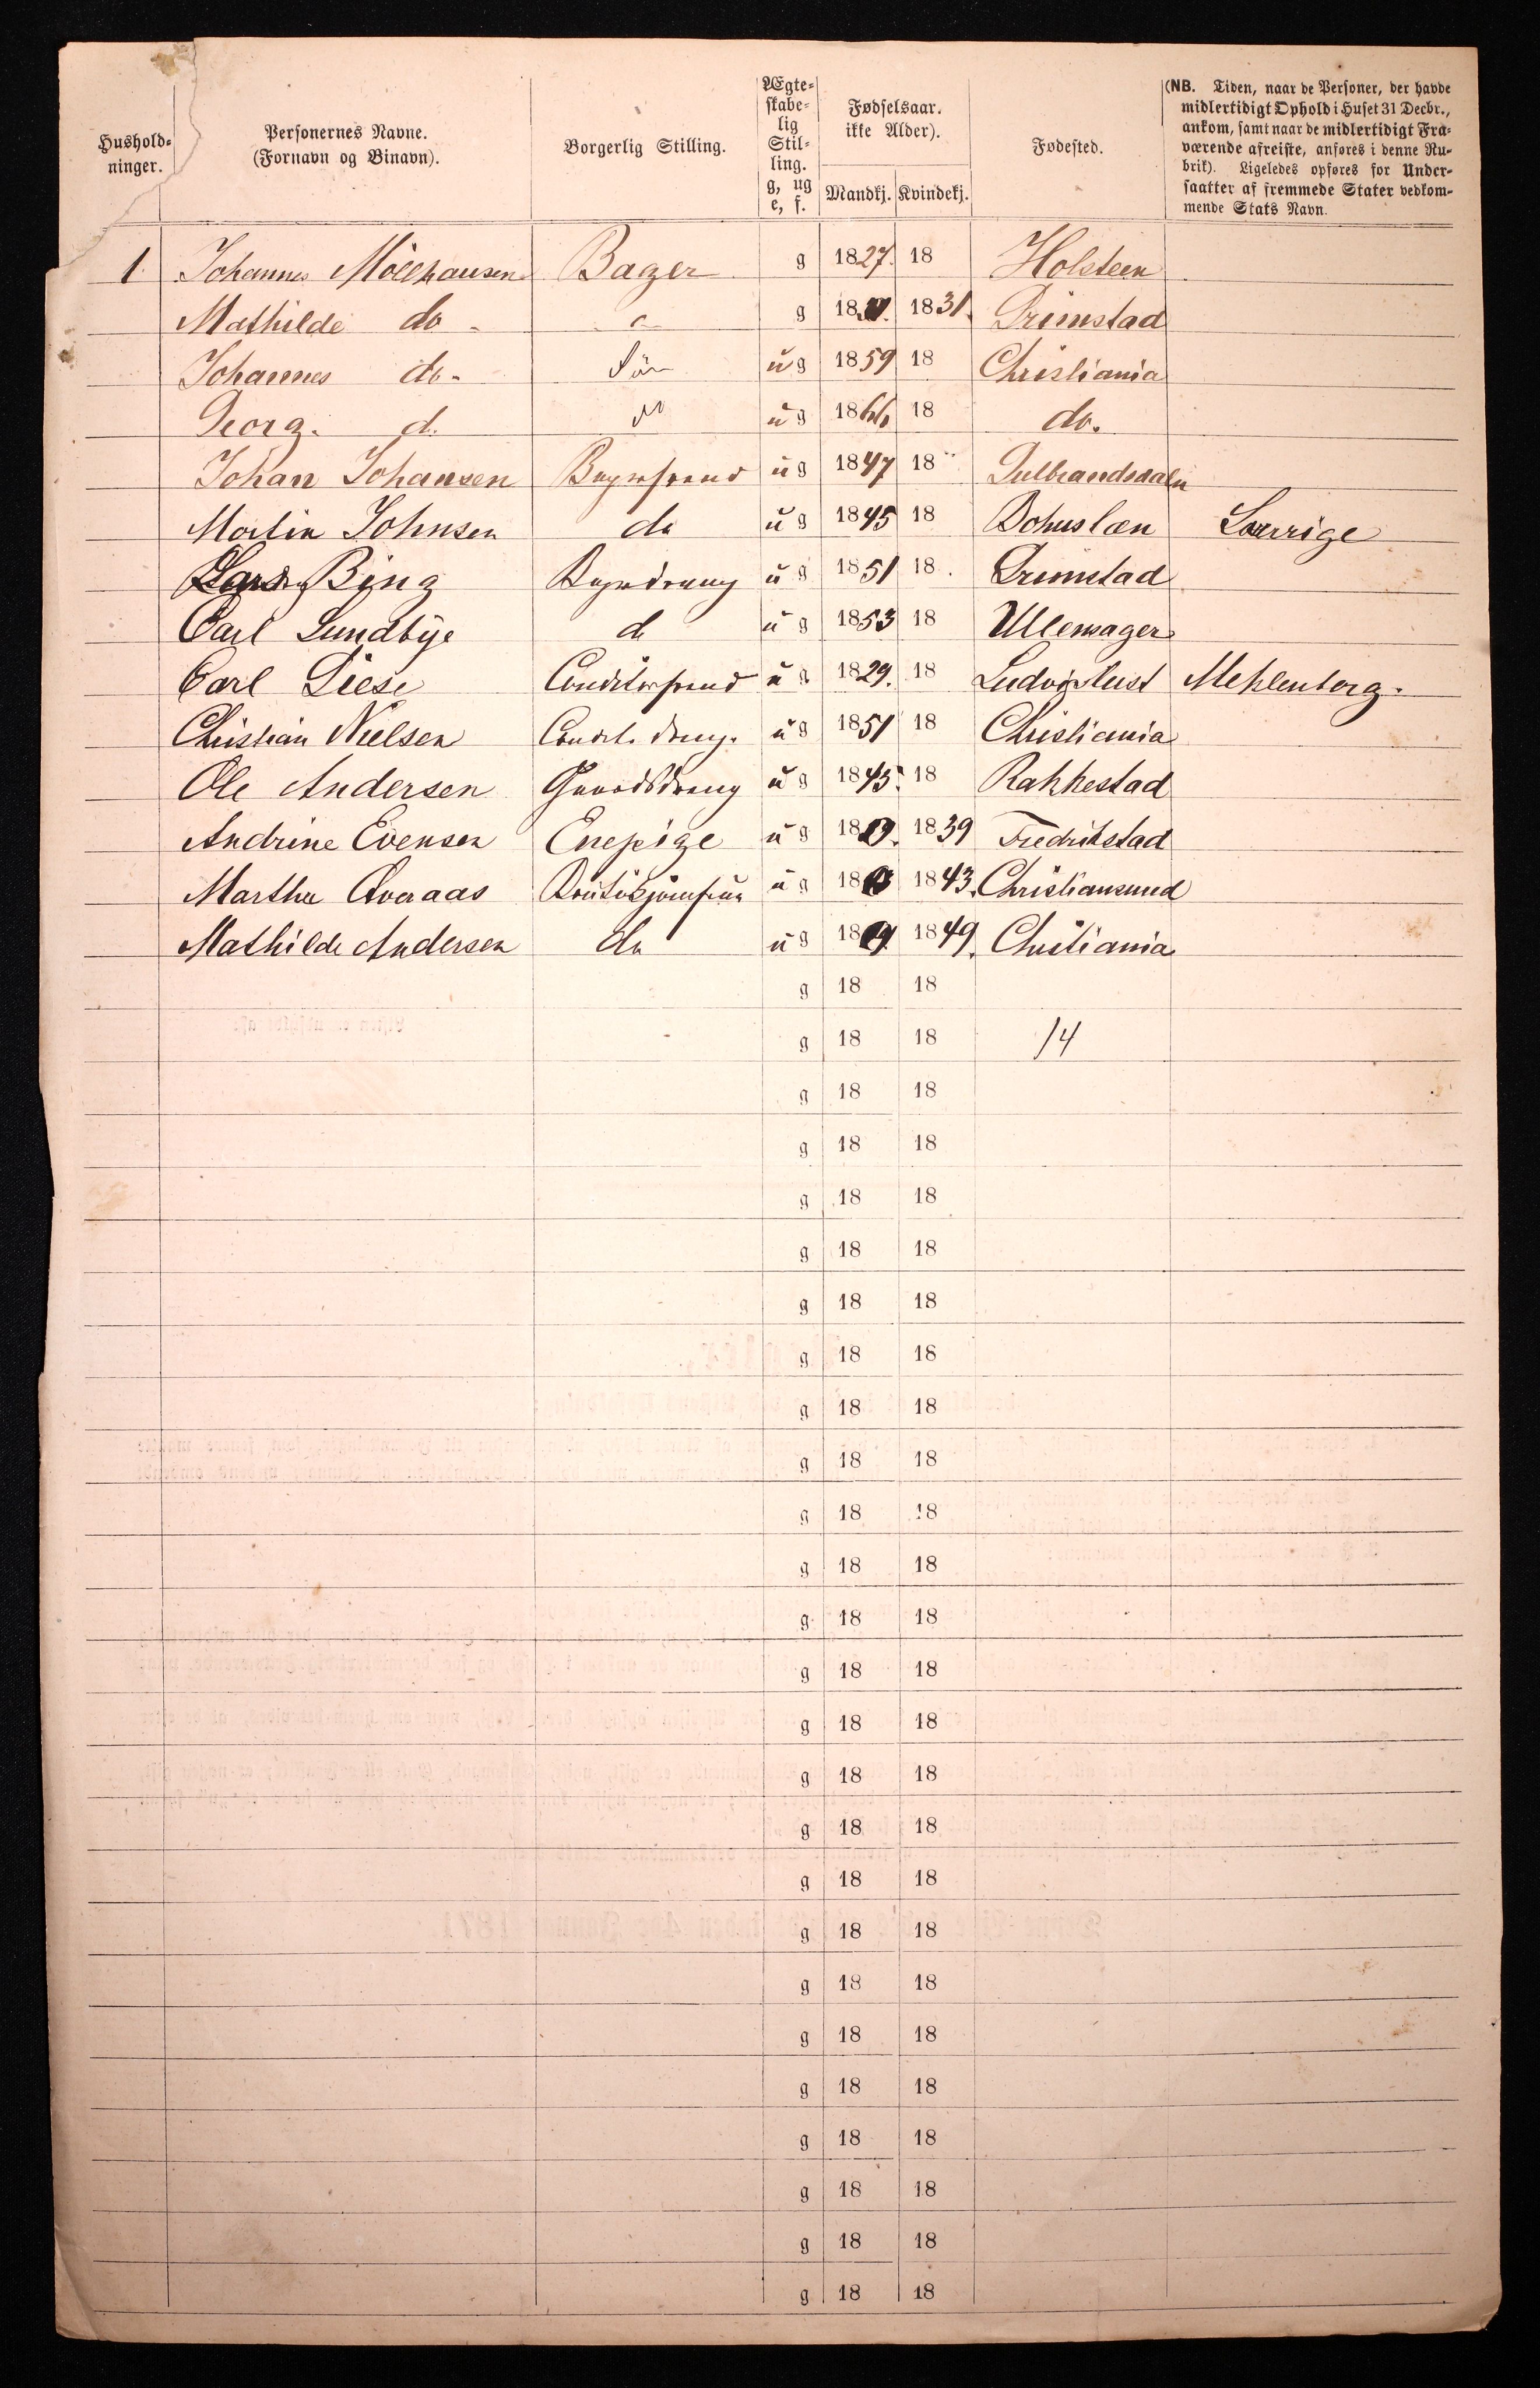 Hushold-
ninger.
Personernes Navne.
(Fornavn og Binavn).
Borgerlig Stilling.
Ægte-
skabe-
lig
Stil-
ling.
g, ug
e, f.
Fødselsaar.
ikke Alder).
Mandkj. Kvindekj.
Fødested.
(NB. Tiden, naar de Personer, der havde
midlertidigt Ophold i Huset 31 Decbr.,
ankom, samt naar de midlertidigt Fra-
værende afreiste, anføres i denne Ru-
brik). Ligeledes opføres for Under-
saatter af fremmede Stater vedkom-
mende Stats Navn.
1. Johannes Möllhausen Bager g 1827. 18 Holsteen
Mathilde do - g 18 1831. Grimstad
Johannes do - Sön ug 1859 18 Christiania
Georg. d. ug 1866 18 do.
Johan Johansen Bagersvend ug 1847 18 Gulbrandsdalen
Martin Johnsen do ug 1845 18 Bohuslæn Sverrige
Bing Bagerdreng ug 1851 18 Grimstad
Carl Lundbye d ug 1853 18 Ullensager
Carl Liese Conditorsvend ug 1829. 18 Ludvigslust Meklenborg.
Christian Nielsen Condit. dreng. ug 1851 18 Christiania
Ole Andersen Gaardsdreng ug 1845. 18 Rakkestad
Andrine Evensen Enepige ug 18 1839 Fredrikstad
Marthe Averaas Boutiksjomfru ug 18 1843. Christiansund
Mathilde Andersen do ug 18 1849. Christiania
g 18 18
g 18 18 14
g 18 18
g 18 18
g 18 18
g 18 18
g 18 18
g 18 18
g 18 18
g 18 18
g 18 18
g 18 18
g 18 18
g 18 18
g 18 18
g 18 18
g 18 18
g 18 18
g 18 18
g 18 18
g 18 18
g 18 18
g 18 18
g 18 18
g 18 18
g 18 18